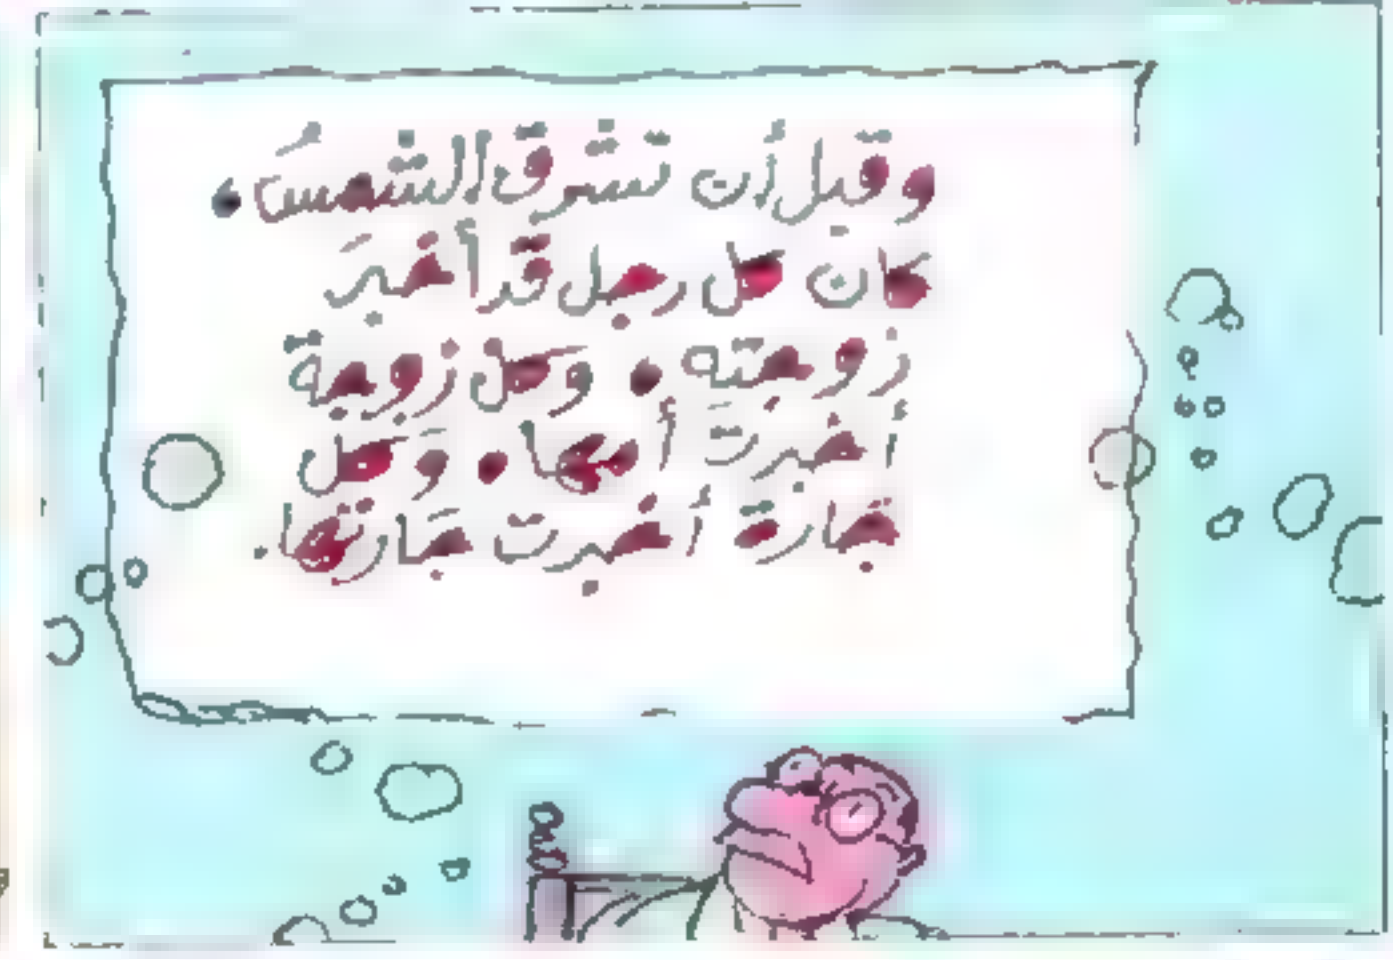 وقبل أن تشرق الشمسُ،
كان كل رجل قد أخبرَ
زوجته . وكل زوجة
أخبرتَ أمها . وَكل
جَارة أخبرت جَارتها .